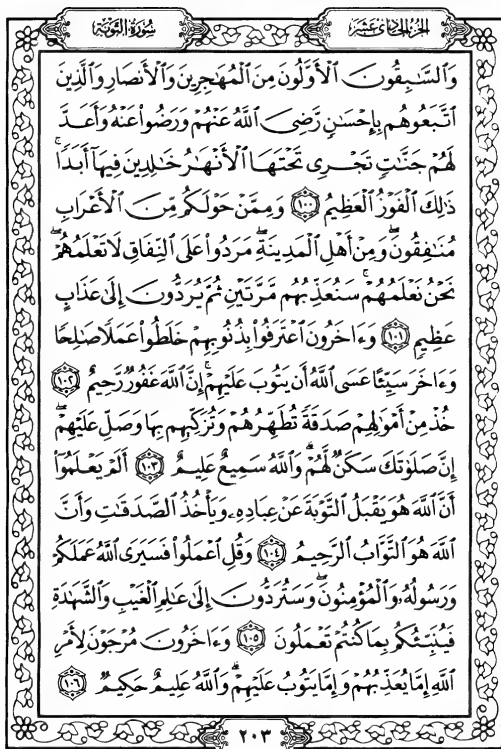 سُورَةُ التَّوۡبَةِ
الجُزءُ الحَادِى عَشَرَ
وَٱلسَّٰبِقُونَ ٱلۡأَوَّلُونَ مِنَ ٱلۡمُهَٰجِرِينَ وَٱلۡأَنصَارِ وَٱلَّذِينَ
ٱتَّبَعُوهُم بِإِحۡسَٰنٖ رَّضِيَ ٱللَّهُ عَنۡهُمۡ وَرَضُواْ عَنۡهُ وَأَعَدَّ
لَهُمۡ جَنَّٰتٖ تَجۡرِي تَحۡتَهَا ٱلۡأَنۡهَٰرُ خَٰلِدِينَ فِيهَآ أَبَدٗاۚ
ذَٰلِكَ ٱلۡفَوۡزُ ٱلۡعَظِيمُ ١٠٠ وَمِمَّنۡ حَوۡلَكُم مِّنَ ٱلۡأَعۡرَابِ
مُنَٰفِقُونَۖ وَمِنۡ أَهۡلِ ٱلۡمَدِينَةِۖ مَرَدُواْ عَلَى ٱلنِّفَاقِ لَا تَعۡلَمُهُمۡۖ
نَحۡنُ نَعۡلَمُهُمۡۚ سَنُعَذِّبُهُم مَّرَّتَيۡنِ ثُمَّ يُرَدُّونَ إِلَىٰ عَذَابٍ
عَظِيمٖ ١٠١ وَءَاخَرُونَ ٱعۡتَرَفُواْ بِذُنُوبِهِمۡ خَلَطُواْ عَمَلٗا صَٰلِحٗا
وَءَاخَرَ سَيِّئًا عَسَى ٱللَّهُ أَن يَتُوبَ عَلَيۡهِمۡۚ إِنَّ ٱللَّهَ غَفُورٞ رَّحِيمٌ ١٠٢
خُذۡ مِنۡ أَمۡوَٰلِهِمۡ صَدَقَةٗ تُطَهِّرُهُمۡ وَتُزَكِّيهِم بِهَا وَصَلِّ عَلَيۡهِمۡۖ
إِنَّ صَلَوٰتَكَ سَكَنٞ لَّهُمۡۗ وَٱللَّهُ سَمِيعٌ عَلِيمٌ ١٠٣ أَلَمۡ يَعۡلَمُوٓاْ
أَنَّ ٱللَّهَ هُوَ يَقۡبَلُ ٱلتَّوۡبَةَ عَنۡ عِبَادِهِۦ وَيَأۡخُذُ ٱلصَّدَقَٰتِ وَأَنَّ
ٱللَّهَ هُوَ ٱلتَّوَّابُ ٱلرَّحِيمُ ١٠٤ وَقُلِ ٱعۡمَلُواْ فَسَيَرَى ٱللَّهُ عَمَلَكُمۡ
وَرَسُولُهُۥ وَٱلۡمُؤۡمِنُونَۖ وَسَتُرَدُّونَ إِلَىٰ عَٰلِمِ ٱلۡغَيۡبِ وَٱلشَّهَٰدَةِ
فَيُنَبِّئُكُم بِمَا كُنتُمۡ تَعۡمَلُونَ ١٠٥ وَءَاخَرُونَ مُرۡجَوۡنَ لِأَمۡرِ
ٱللَّهِ إِمَّا يُعَذِّبُهُمۡ وَإِمَّا يَتُوبُ عَلَيۡهِمۡۗ وَٱللَّهُ عَلِيمٌ حَكِيمٞ ١٠٦
٢٠٣